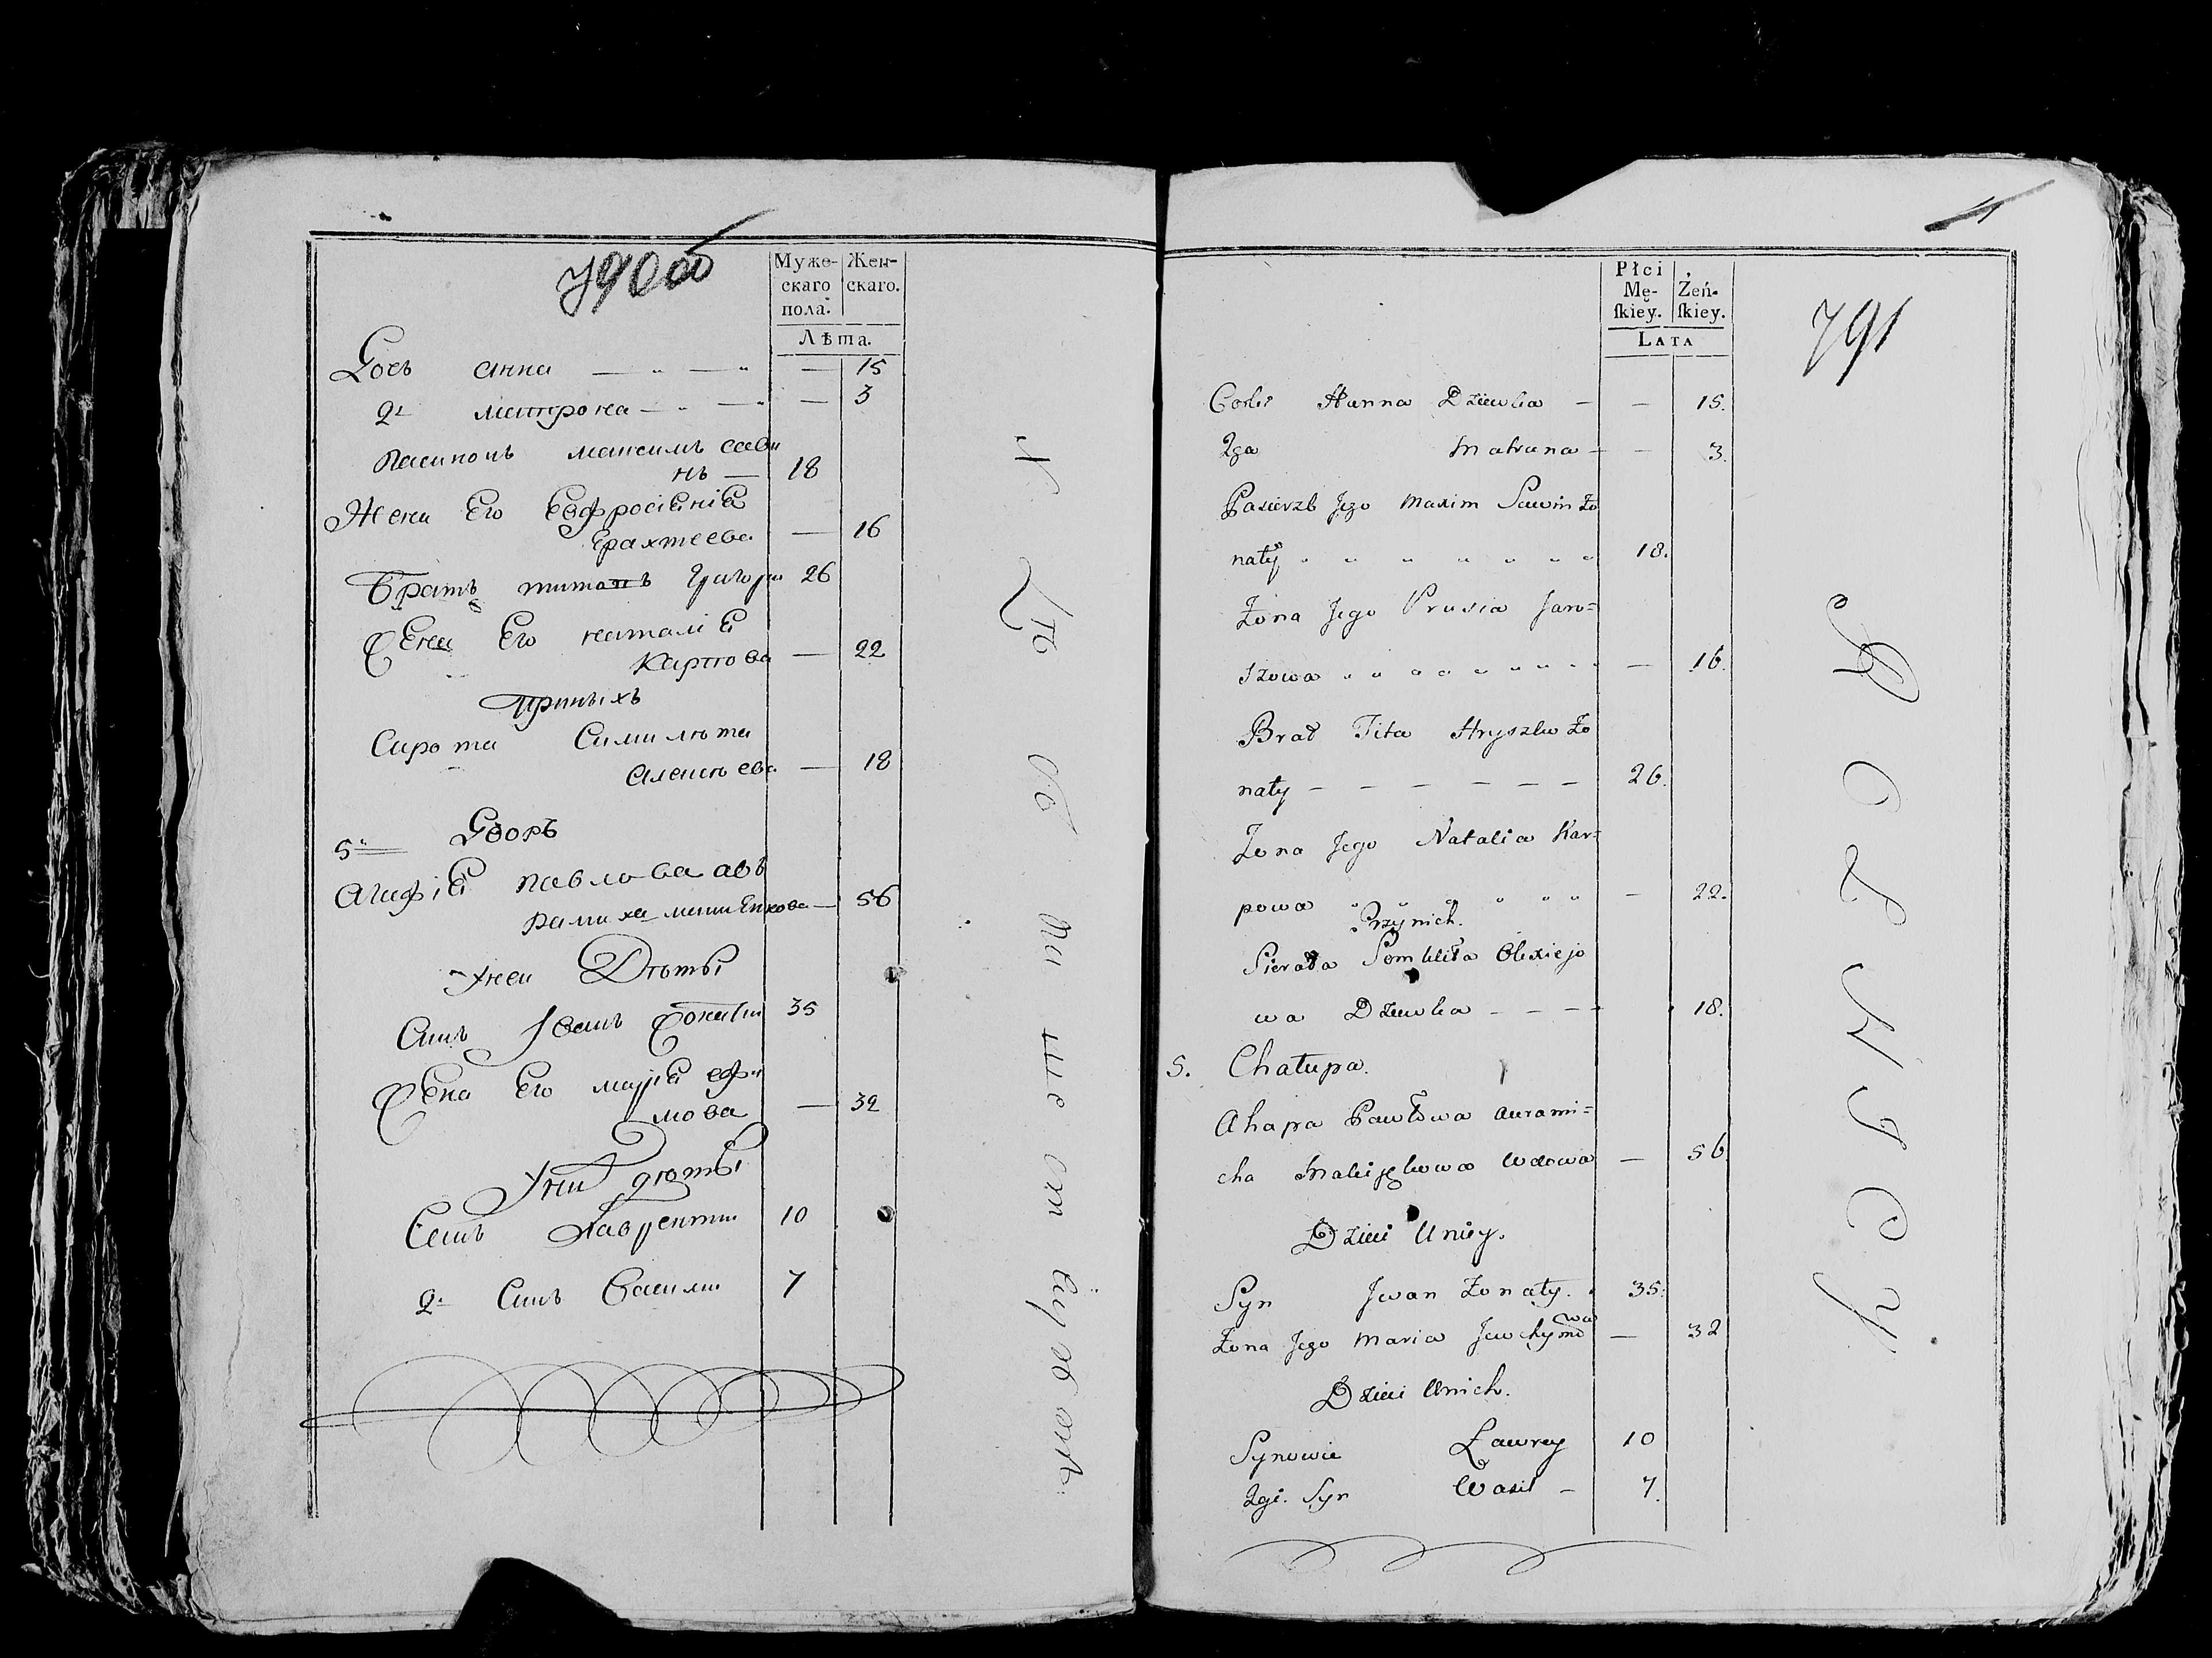 790об
Муже-
скаго
пола.
Жен-
скаго.
Лѣта.
Дочь Анна — „ — „ — 15
2я матрона — „ — „ — 3
пасинокъ максимъ сави
нъ — 18
Жена Его Евфросиния
Ерахтеева — 16
Братъ титъ Григори 26
Жена Его наталия
Карпова — 22
при ныхъ
Сирота
Алексѣева — 18
5. Дворъ
Агафия павлова
56
У неи Дѣти
Синъ Иванъ 35
Жена Его мария ефи
мова — 32
У них дѣти
Синъ Лаврентии 10
2. Синъ Василии 7
Płci
Mę-
ſkiey.
Żeń-
ſkiey.
LATA
791
Corki Hanna Dziewka — — 15.
2ga Matruna — — 3.
Pasierzb Jego Maxim Sawin Żo
naty 18.
Żona Jego Prusia Jaro=
szowa — 16.
Brat Tita Hryszko Żo
naty — — — — — — 26.
Żona Jego Natalia Kar=
powa — 22.
Przynich.
Sierota Olexiejo
wa Dziewka — — — — 18.
5. Chałupa.
Ahapa Pawłowa Awrami=
cha Wdowa — 56
Dzieci Uniey.
Syn Jwan Żonaty. 35.
Żona Jego Maria Jewchymowa — 32
Dzieci Unich.
Synowie Ławrey 10
2gi. Syn Wasil — 7.